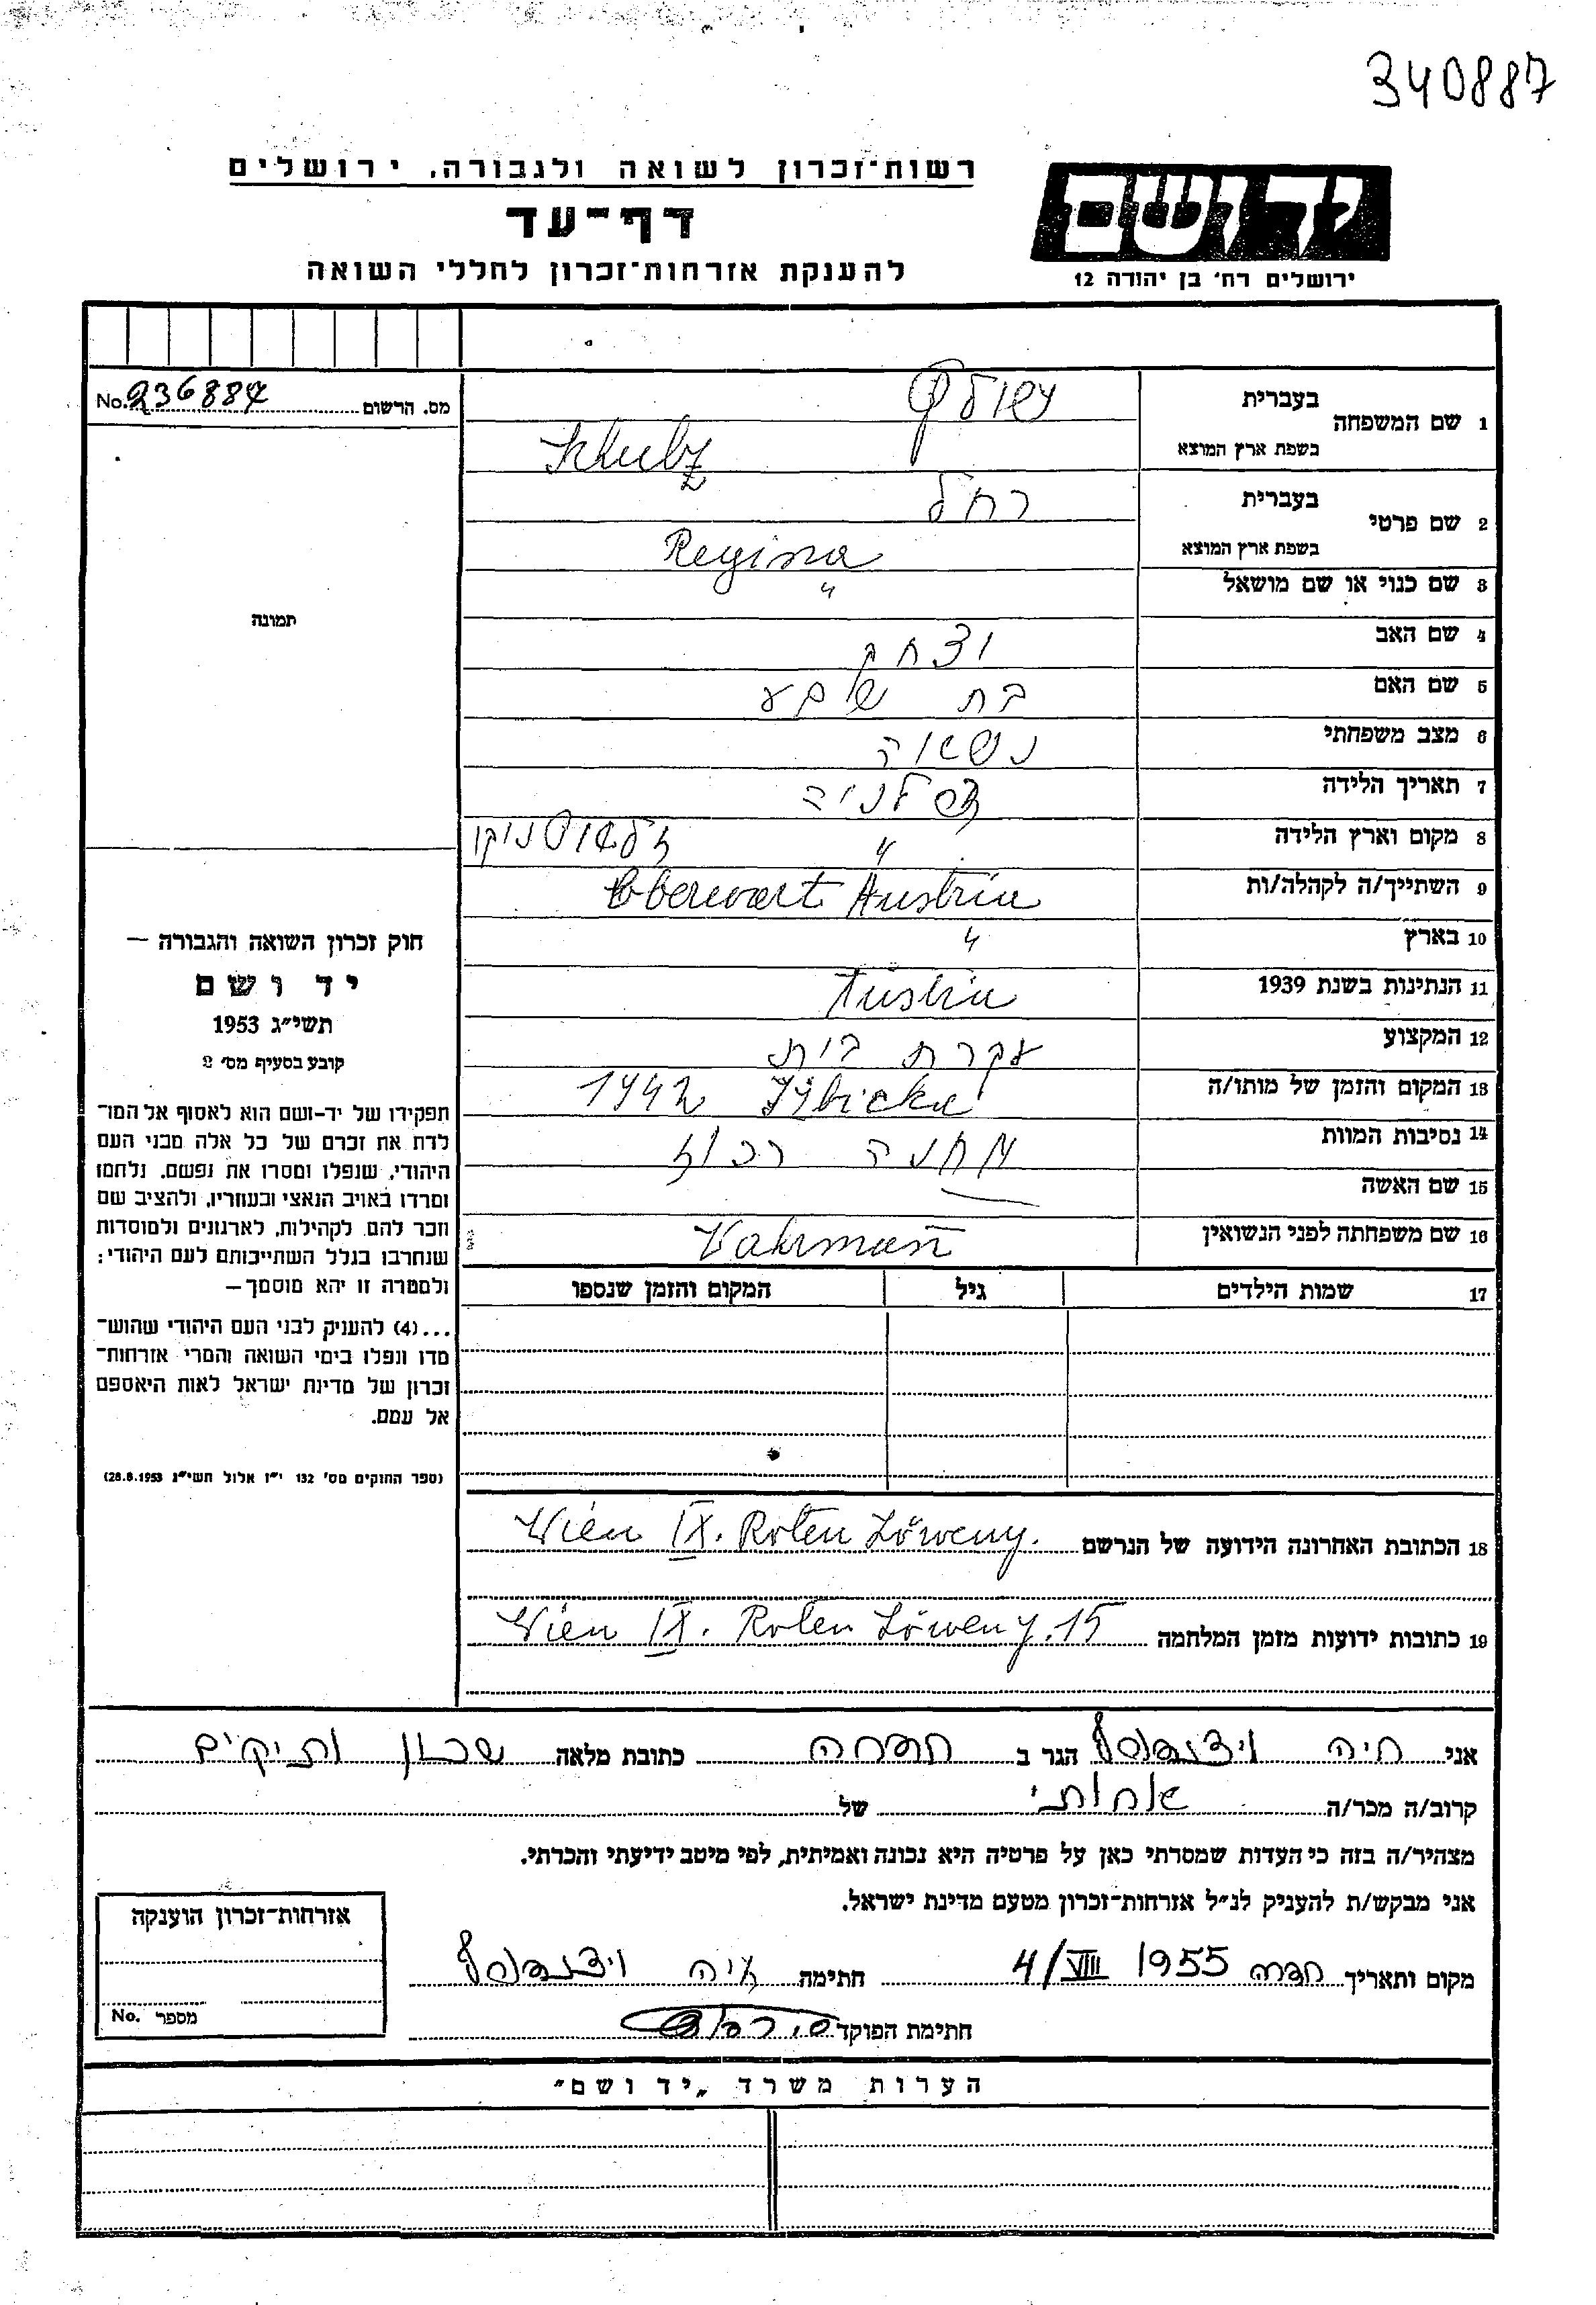 340887
רשות־זכרון לשואה ולגבורה, ירושלים
דף־עד
להענקת אזרחות־זכרון לחללי השואה
יד ושם
ירושלים רח׳ בן יהודה 12
מס. הרשום No. 236884
1 שם המשפחה
בעברית
בשפת ארץ המוצא
2 שם פרטי
בעברית רחל
בשפת ארץ המוצא Regina
3 שם כנוי או שם מושאל "
4 שם האב יצחק
5 שם האם בת שבע
6 מצב משפחתי נשואה
7 תאריך הלידה
8 מקום וארץ הלידה "
9 השתייך/ה לקהלה/ות Oberwart Austria
10 בארץ "
11 הנתינות בשנת 1939 Austria
12 המקצוע עקרת בית
13 המקום והזמן של מותו/ה 1942
14 נסיבות המוות מחנה רכוז
15 שם האשה —
16 שם משפחתה לפני הנשואין Vahrmann
17 שמות הילדים גיל המקום והזמן שנספו
תמונה
חוק זכרון השואה והגבורה —
יד ושם
תשי״ג 1953
קובע בסעיף מס׳ 2
תפקידו של יד-ושם הוא לאסוף אל המו־
לדת את זכרם של כל אלה מבני העם
היהודי, שנפלו ומסרו את נפשם, נלחמו
ומרדו באויב הנאצי ובעוזריו, ולהציב שם
וזכר להם, לקהילות, לארגונים ולמוסדות
שנחרבו בגלל השתייכותם לעם היהודי;
ולמטרה זו יהא מוסמך —
...(4) להעניק לבני העם היהודי שהוש־
מדו ונפלו בימי השואה והמרי אזרחות־
זכרון של מדינת ישראל לאות היאספם
אל עמם.
(ספר החוקים מס׳ 132 י״ז אלול תשי״ג 28.8.1953)
18 הכתובת האחרונה הידועה של הנרשם Wien IX. Roten Löweng.
19 כתובות ידועות מזמן המלחמה Wien IX. Roten Löweng. 15
אני חיה הגר ב חדרה כתובת מלאה שכון ותיקים
קרוב/ה מכר/ה אחותי של
מצהיר/ה בזה כי העדות שמסרתי כאן על פרטיה היא נכונה ואמיתית, לפי מיטב ידיעתי והכרתי.
אני מבקש/ת להעניק לנ״ל אזרחות־זכרון מטעם מדינת ישראל.
מקום ותאריך חדרה 4/VIII 1955 חתימה חיה
חתימת הפוקד
אזרחות־זכרון הוענקה
מספר No.
הערות משרד „יד ושם"